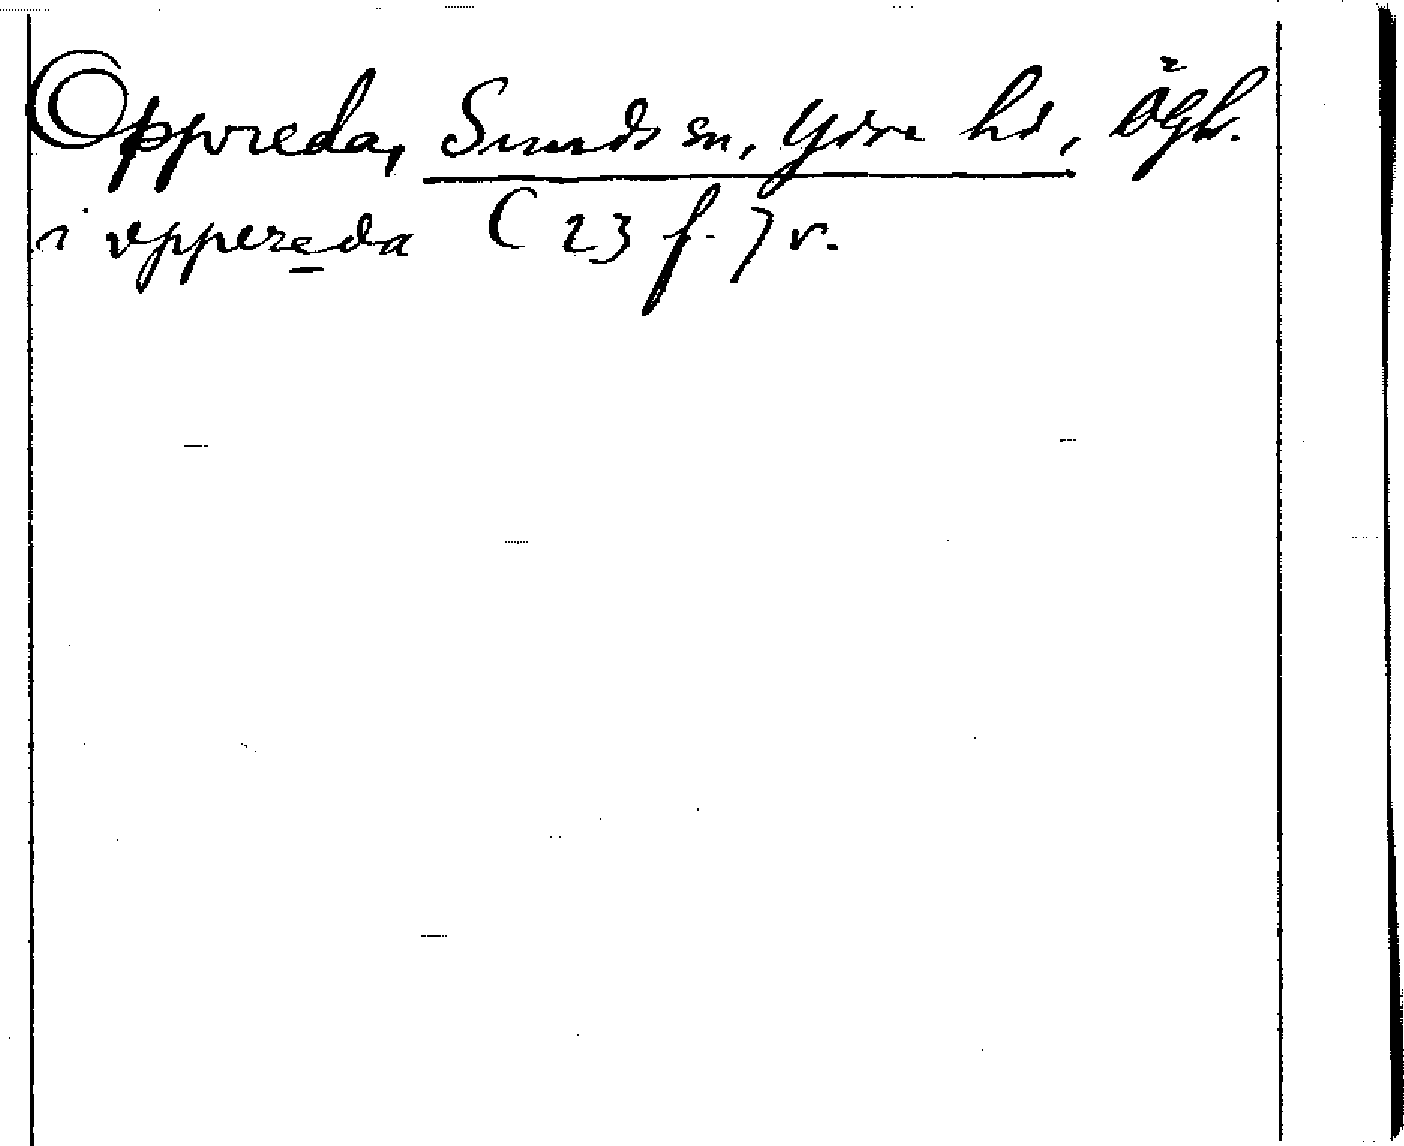 Oppreda, Sunds sn, Ydre hd, Ögl.
i vppereda (23 f.) v.